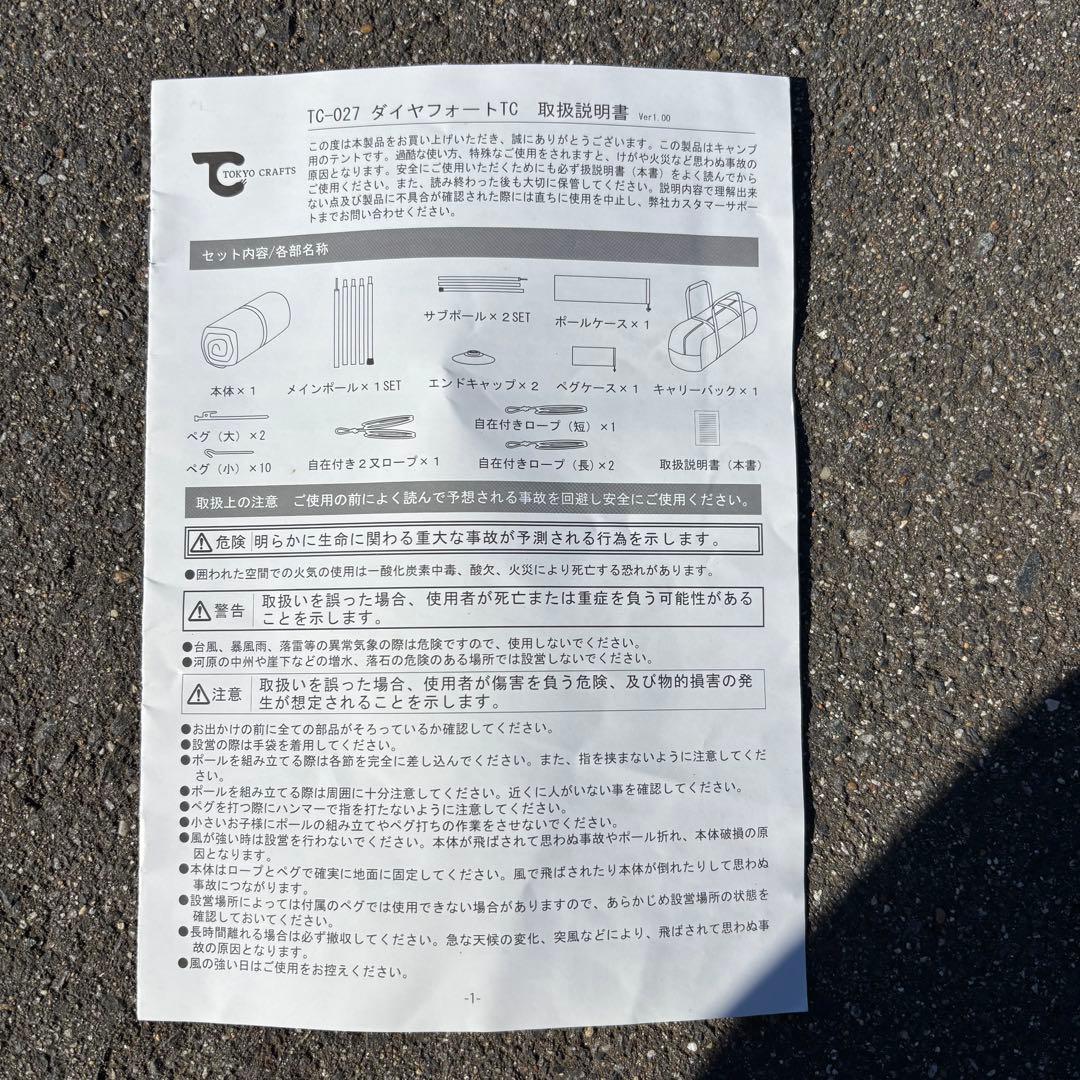 TC-027 ダイヤフォートTC 取扱説明書 Ver1.00
TC
TOKYO CRAFTS
この度は本製品をお買い上げいただき、誠にありがとうございます。この製品はキャンプ
用のテントです。過酷な使い方、特殊なご使用をされますと、けがや火災など思わぬ事故の
原因となります。安全にご使用いただくためにも必ず扱説明書（本書）をよく読んでから
ご使用ください。また、読み終わった後も大切に保管してください。説明内容で理解出来
ない点及び製品に不具合が確認された際には直ちに使用を中止し、弊社カスタマーサポー
トまでお問い合わせください。
セット内容/各部名称
サブポール×２SET
ポールケース×１
本体×１
メインポール×１SET
エンドキャップ×２
ペグケース×１
キャリーバック×１
ペグ（大）×2
ペグ（小）×10
自在付き２又ロープ×１
自在付きロープ（短）×1
自在付きロープ（長）×2
取扱説明書（本書）
取扱上の注意　ご使用の前によく読んで予想される事故を回避し安全にご使用ください。
危険 明らかに生命に関わる重大な事故が予測される行為を示します。
●囲われた空間での火気の使用は一酸化炭素中毒、酸欠、火災により死亡する恐れがあります。
警告 取扱いを誤った場合、使用者が死亡または重症を負う可能性がある
ことを示します。
●台風、暴風雨、落雷等の異常気象の際は危険ですので、使用しないでください。
●河原の中州や崖下などの増水、落石の危険のある場所では設営しないでください。
注意 取扱いを誤った場合、使用者が傷害を負う危険、及び物的損害の発
生が想定されることを示します。
●お出かけの前に全ての部品がそろっているか確認してください。
●設営の際は手袋を着用してください。
●ポールを組み立てる際は各節を完全に差し込んでください。また、指を挟まないように注意してくだ
さい。
●ポールを組み立てる際は周囲に十分注意してください。近くに人がいない事を確認してください。
●ペグを打つ際にハンマーで指を打たないように注意してください。
●小さいお子様にポールの組み立てやペグ打ちの作業をさせないでください。
●風が強い時は設営を行わないでください。本体が飛ばされて思わぬ事故やポール折れ、本体破損の原
因となります。
●本体はロープとペグで確実に地面に固定してください。風で飛ばされたり本体が倒れたりして思わぬ
事故につながります。
●設営場所によっては付属のペグでは使用できない場合がありますので、あらかじめ設営場所の状態を
確認しておいてください。
●長時間離れる場合は必ず撤収してください。急な天候の変化、突風などにより、飛ばされて思わぬ事
故の原因となります。
●風の強い日はご使用をお控えください。
-1-